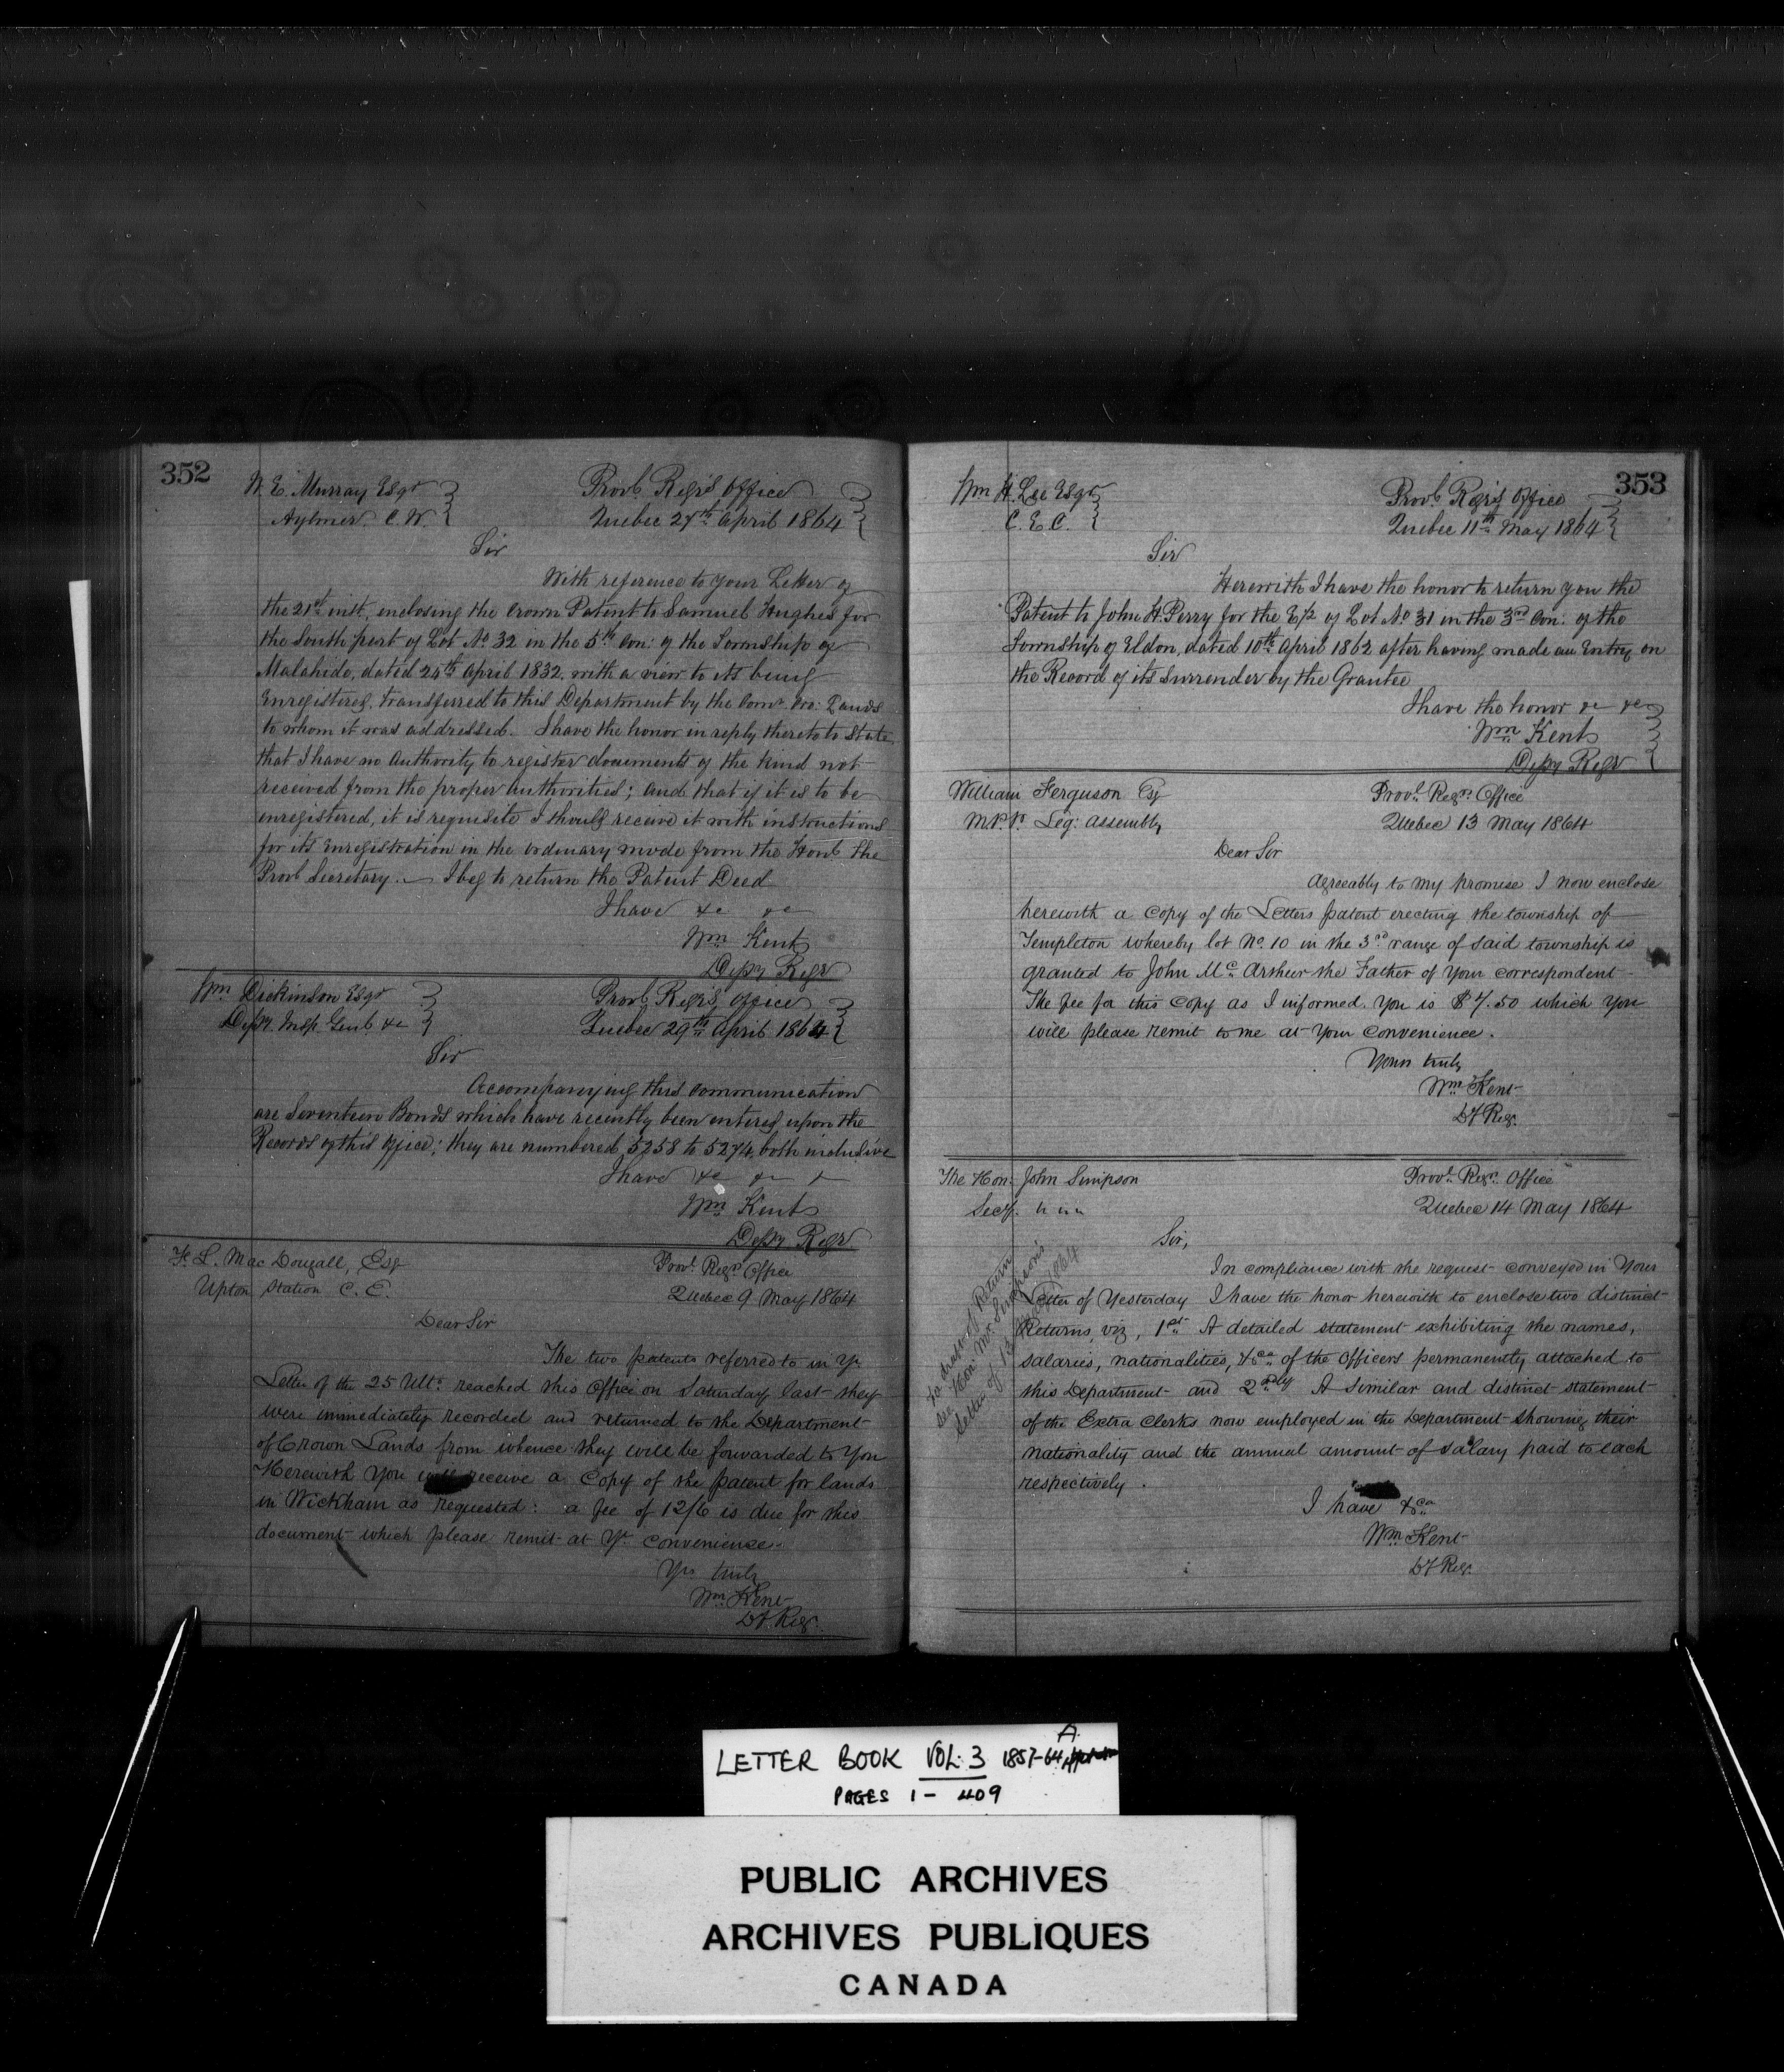 352
W. E. Murray Esqr
Aylmer C. W.
Provl Regr's Office
Quebec 27th April 1864
Sir
With reference to your Letter of
the 21st inst. enclosing the Crown Patent to Samuel Hughes for
the South part of Lot No. 32 in the 5th Con: of the Township of
Malahide, dated 24th April 1832. with a view to its being
Enregistered, transferred to this Department by the Comr. Cro: Lands
to whom it was addressed. I have the honor in reply thereto to State
that I have no authority to register documents of the kind not
received from the proper authorities; and that if it is to be
enregistered, it is requisite I should receive it with instructions
for its Enregistration in the ordinary mode from the Honb the
Provl Secretary. — I beg to return the Patent Deed
I have &c &c
Wm Kent
Depy Regr
Wm Dickinson Esqr
Depy. Insp. Genl. &c
Provl Regr's Office
Quebec 29th April 1864
Sir
Accompanying this communication
are Seventeen Bonds which have recently been entered upon the
Records of this Office; they are numbered 5258 to 5274, both inclusive
I have &c &c &
Wm Kent
Depy Regr
F. L. Mac Dougall, Esq
Upton Station C. E.
Provl Regrs Office
Quebec 9 May 1864
Dear Sir
The two patents referred to in Yr
Letter of the 25 Ulto. reached this Office on Saturday last they
were immediately recorded and returned to the Department
of Crown Lands from whence they will be forwarded to You
Herewith You will receive a Copy of the patent for lands
in Wickham as requested: a fee of 12/6 is due for this
document which please remit at Yr. Convenience.
Yrs truly
Wm Kent
Dy. Reg.
353
Wm H. Lee Esqr
C. E. C.
Provl Regr's Office
Quebec 11th May 1864
Sir
Herewith I have the honor to return you the
Patent to John H. Perry for the E 1/2 of Lot No 31 in the 3rd Con: of the
Township of Eldon, dated 10th April 1862 after having made an Entry on
the Record of its Surrender by the Grantee
I have the honor &c &c
Wm Kent
Depy Regr
William Ferguson Esq
M.P.P. Leg: Assembly
Provl. Regrs. Office
Quebec 13 May 1864
Dear Sir
Agreeably to my promise I now enclose
herewith a Copy of the Letters patent erecting the township of
Templeton whereby lot No. 10 in the 3rd range of said township is
granted to John Mc. Arthur the Father of Your correspondent
The fee for this Copy as I informed You is $7.50 which You
will please remit to me at Your Convenience.
Yours truly
Wm Kent
Dy Reg.
The Hon: John Simpson
Secy.
Provl Regrs. Office
Quebec 14 May 1864
Sir,
In compliance with the request conveyed in Your
Letter of Yesterday I have the honor herewith to enclose two distinct
Returns, viz, 1st A detailed statement exhibiting the names,
salaries, nationalities, &ca of the Officers permanently attached to
this Department and 2ndly A similar and distinct statement
of the Extra Clerks now employed in the Department showing their
nationality and the annual amount of salary paid to each
respectively.
I have &ca
Wm Kent
Dy Reg.
For draft of Return
see Hon: Mr. Simpson's
letter of 13 1864
LETTER BOOK VOL. 3 1857-64 A
PAGES 1 - 409
PUBLIC ARCHIVES
ARCHIVES PUBLIQUES
CANADA